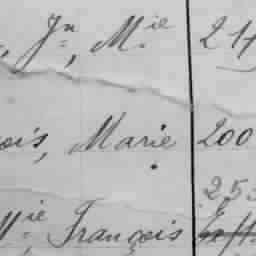 , Jn, Mie 24
ois, Marie 200
253
Mie François